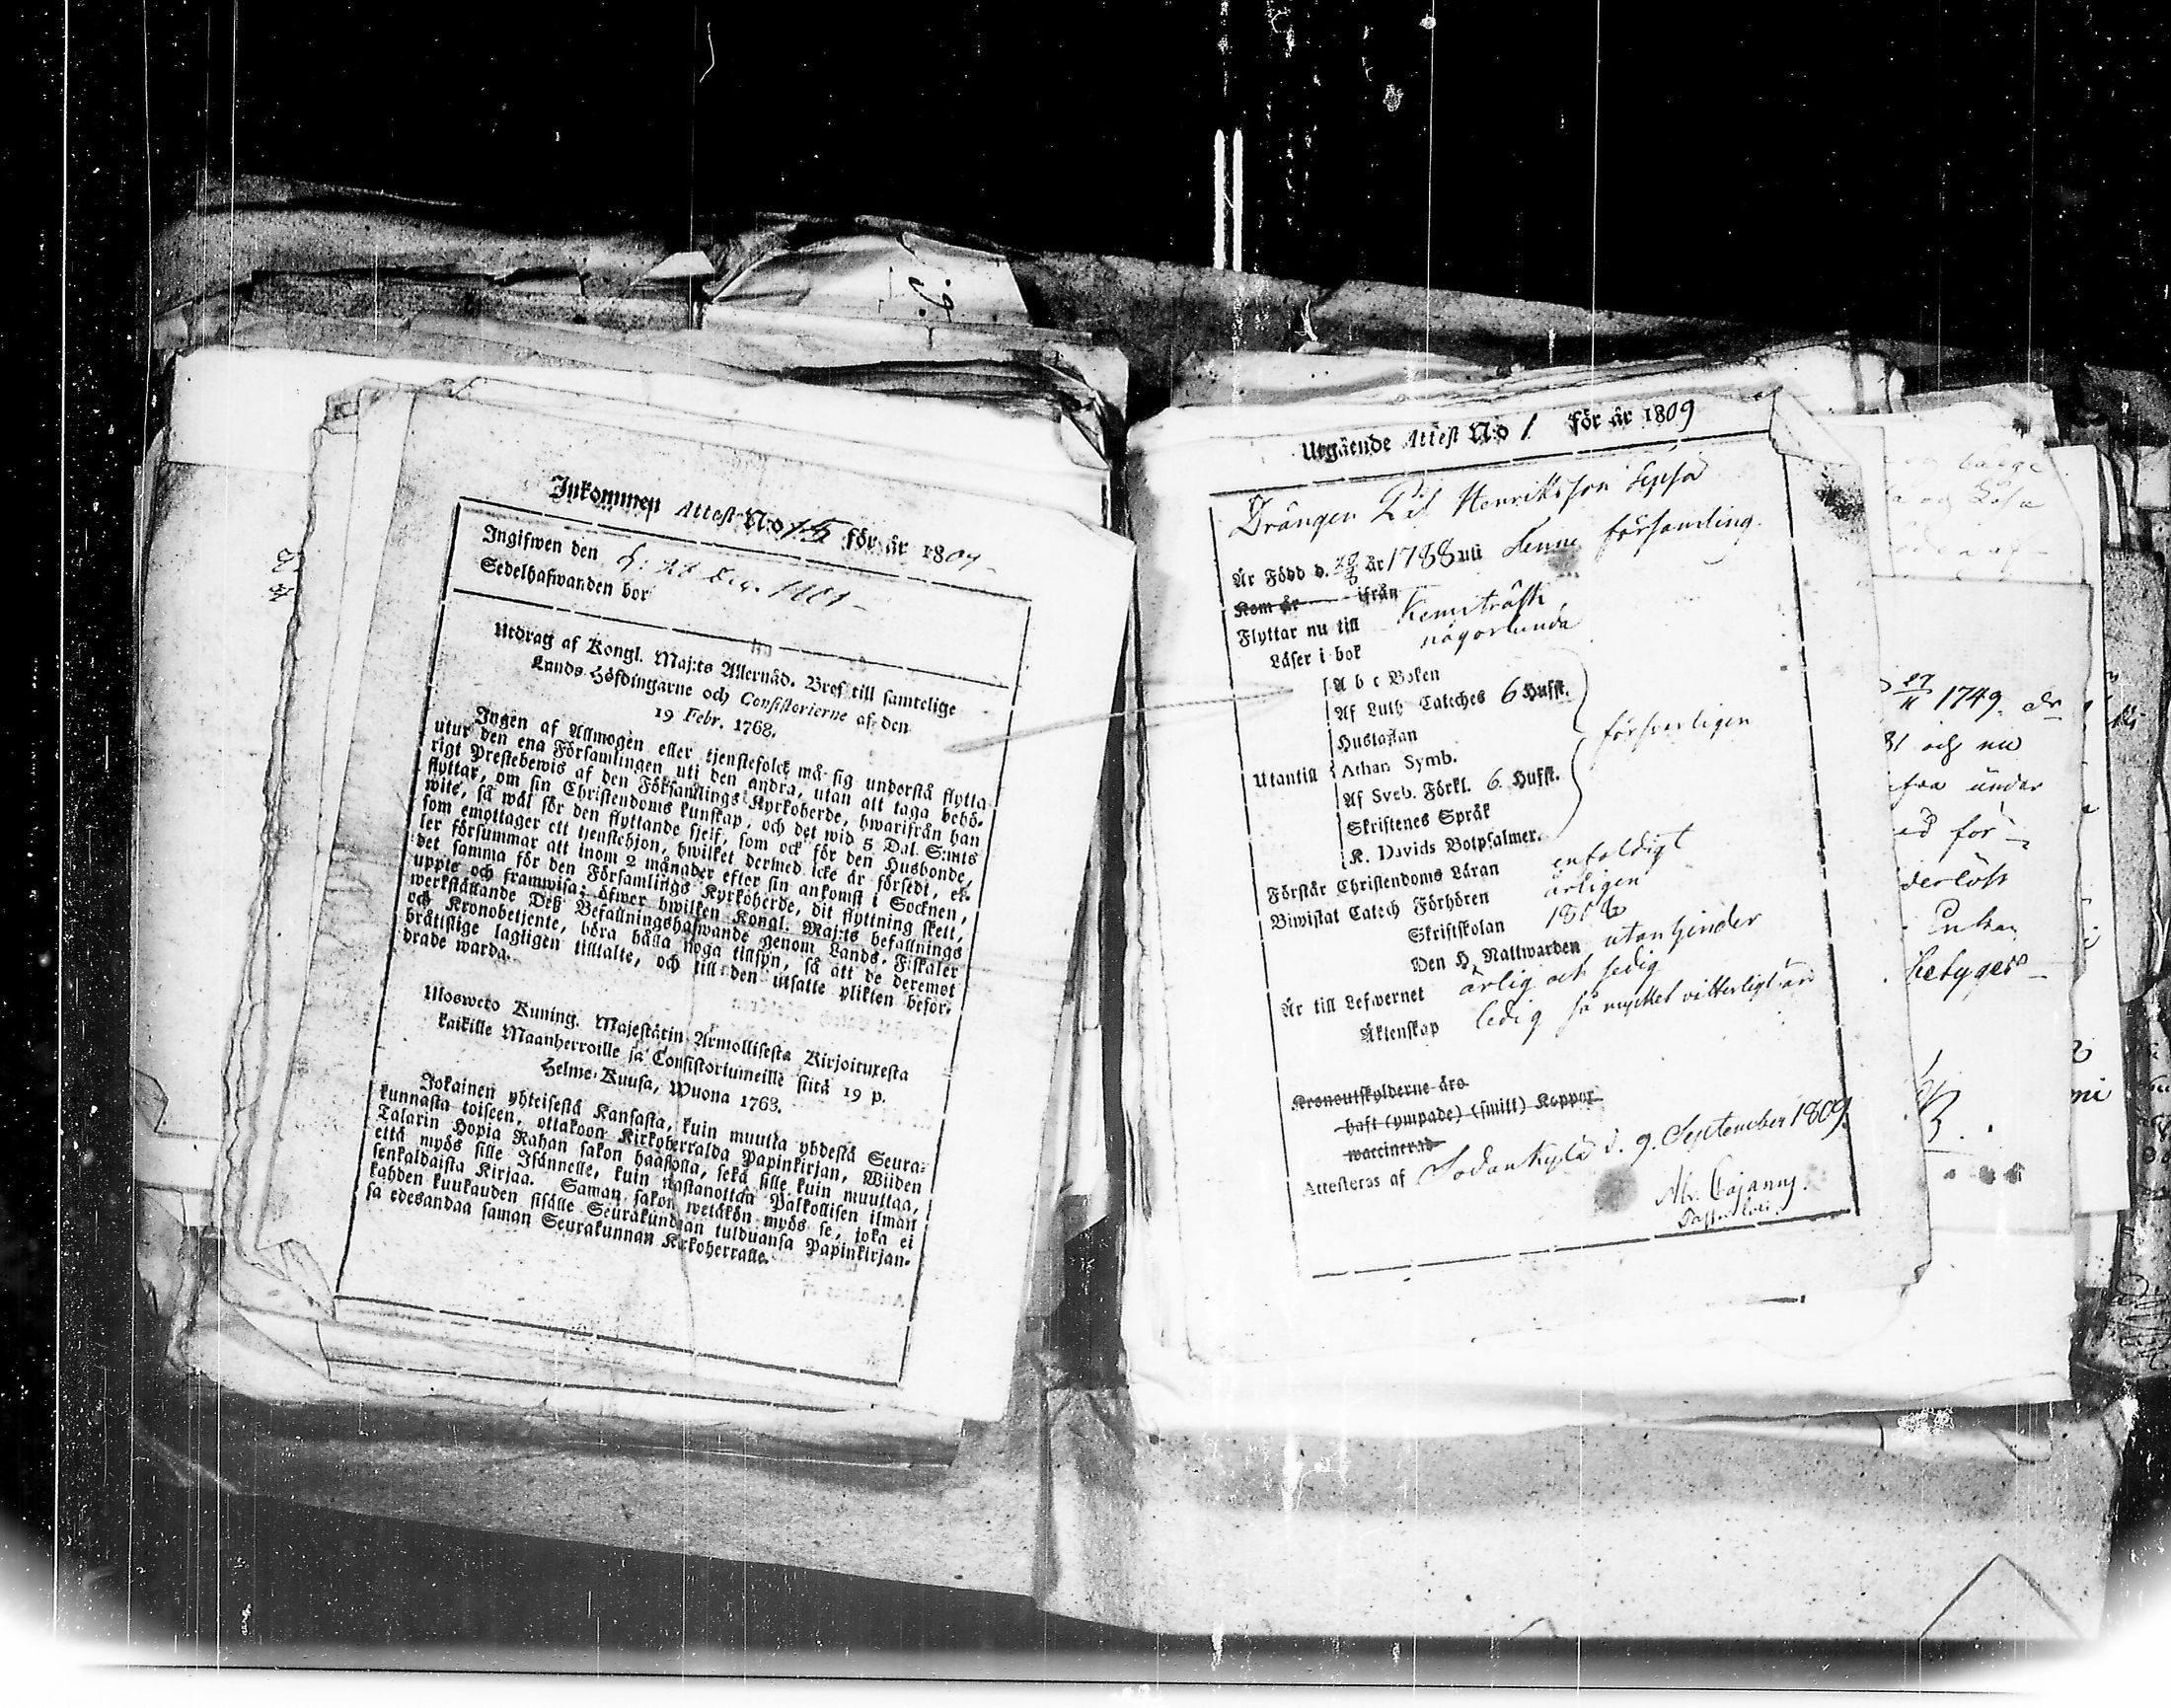 Inkommen Attest N:o 15 för år 1809
Ingifwen den d: 28 Dec. 1809
Sedelhafwanden bor
Utdrag af Kongl. Maj:ts Allernåd. Bref till samtelige
Lands-Höfdingarne och Consistorierne af den
19 Febr. 1768.
Ingen af Allmogen eller tjenstefolck må sig understå flytta
utur den ena Församlingen uti den andra, utan att taga behö-
rigt Prestebewis af den Församlings Kyrkoherde, hwarifrån han
flyttar, om sin Christendoms kunskap, och det wid 5 Dal. S:mts
wite, så wäl för den flyttande sjelf, som ock för den Husbonde,
som emottager ett tjenstehjon, hwilket dermed icke är försedt, el-
ler försummar att inom 2 månader efter sin ankomst i Socknen,
det samma för den Församlings Kyrkoherde, dit flyttning skett,
uppte och framwisa; öfwer hwilken Kongl. Maj:ts befallnings
werkställande Deß Befallningshafwande genom Lands-Fiskaler
och Kronobetjente, böra hålla noga tillsyn, så att de deremot
bråtislige lagligen tilltalte, och till den utsatte plikten befor-
drade warda.
Ulosweto Kuning. Majestätin Armollisesta Kirjoituxesta
kaikille Maanherroille ja Consistoriumeille siitä 19 p.
Helme-Kuusa, Wuona 1768.
Jokainen yhteisestä Kansasta, kuin muutta yhdestä Seura-
kunnasta toiseen, ottakoon Kirkoherralda Papinkirjan, Wiiden
Talarin Hopia Rahan sakon haastolla, sekä sille kuin muuttaa,
että myös sille Isännelle, kuin wastanottaa Palkollisen ilman
senkaldaista Kirjaa. Saman sakon wetäkön myös se, joka ei
kahden kuukauden sisälle Seurakundaan tulduansa Papinkirjan-
sa edesandaa saman Seurakunnan Kirkoherralle.
Utgående Attest N:o 1 för år 1809
Drängen Pål Henriksson Seppä
Är Född d. 29/8 år 1788 uti denne församling.
Kom år ifrån
Flyttar nu till Kemiträsk
Läser i bok någorlunda
A b c Boken
Af Luth Cateches 6 Hufst.
Hustaflan
Utantill Athan Symb. försvarligen
Af Sveb. Förkl. 6. Hufst.
Skriftenes Språk
K. Davids Botpsalmer.
Förstår Christendoms Läran enfaldigt
Biwistat Catech Förhören årligen
Skriftskolan 1808
Den H. Nattwarden utan hinder
Är till Lefwernet ärlig och sedig
Äktenskap ledig så mycket vitterligt är
Kronoutskylderne äro
haft (ympade) (smitt) Koppor
waccinerad
Attesteras af Sodankylä d. 9. September 1809.
Ab. Cajanus.
27/11 1749.
81 och nu
under
för